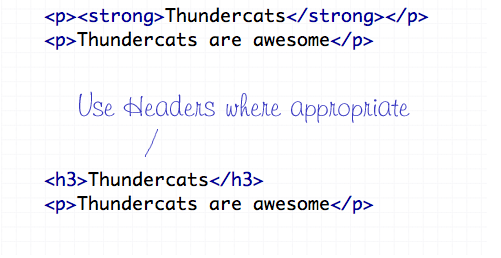 <p><strong>Thundercats</strong></p>
<p>Thundercats are awesome</p>
Use Headers where appropriate
<h3>Thundercats</h3>
<p>Thundercats are awesome</p>